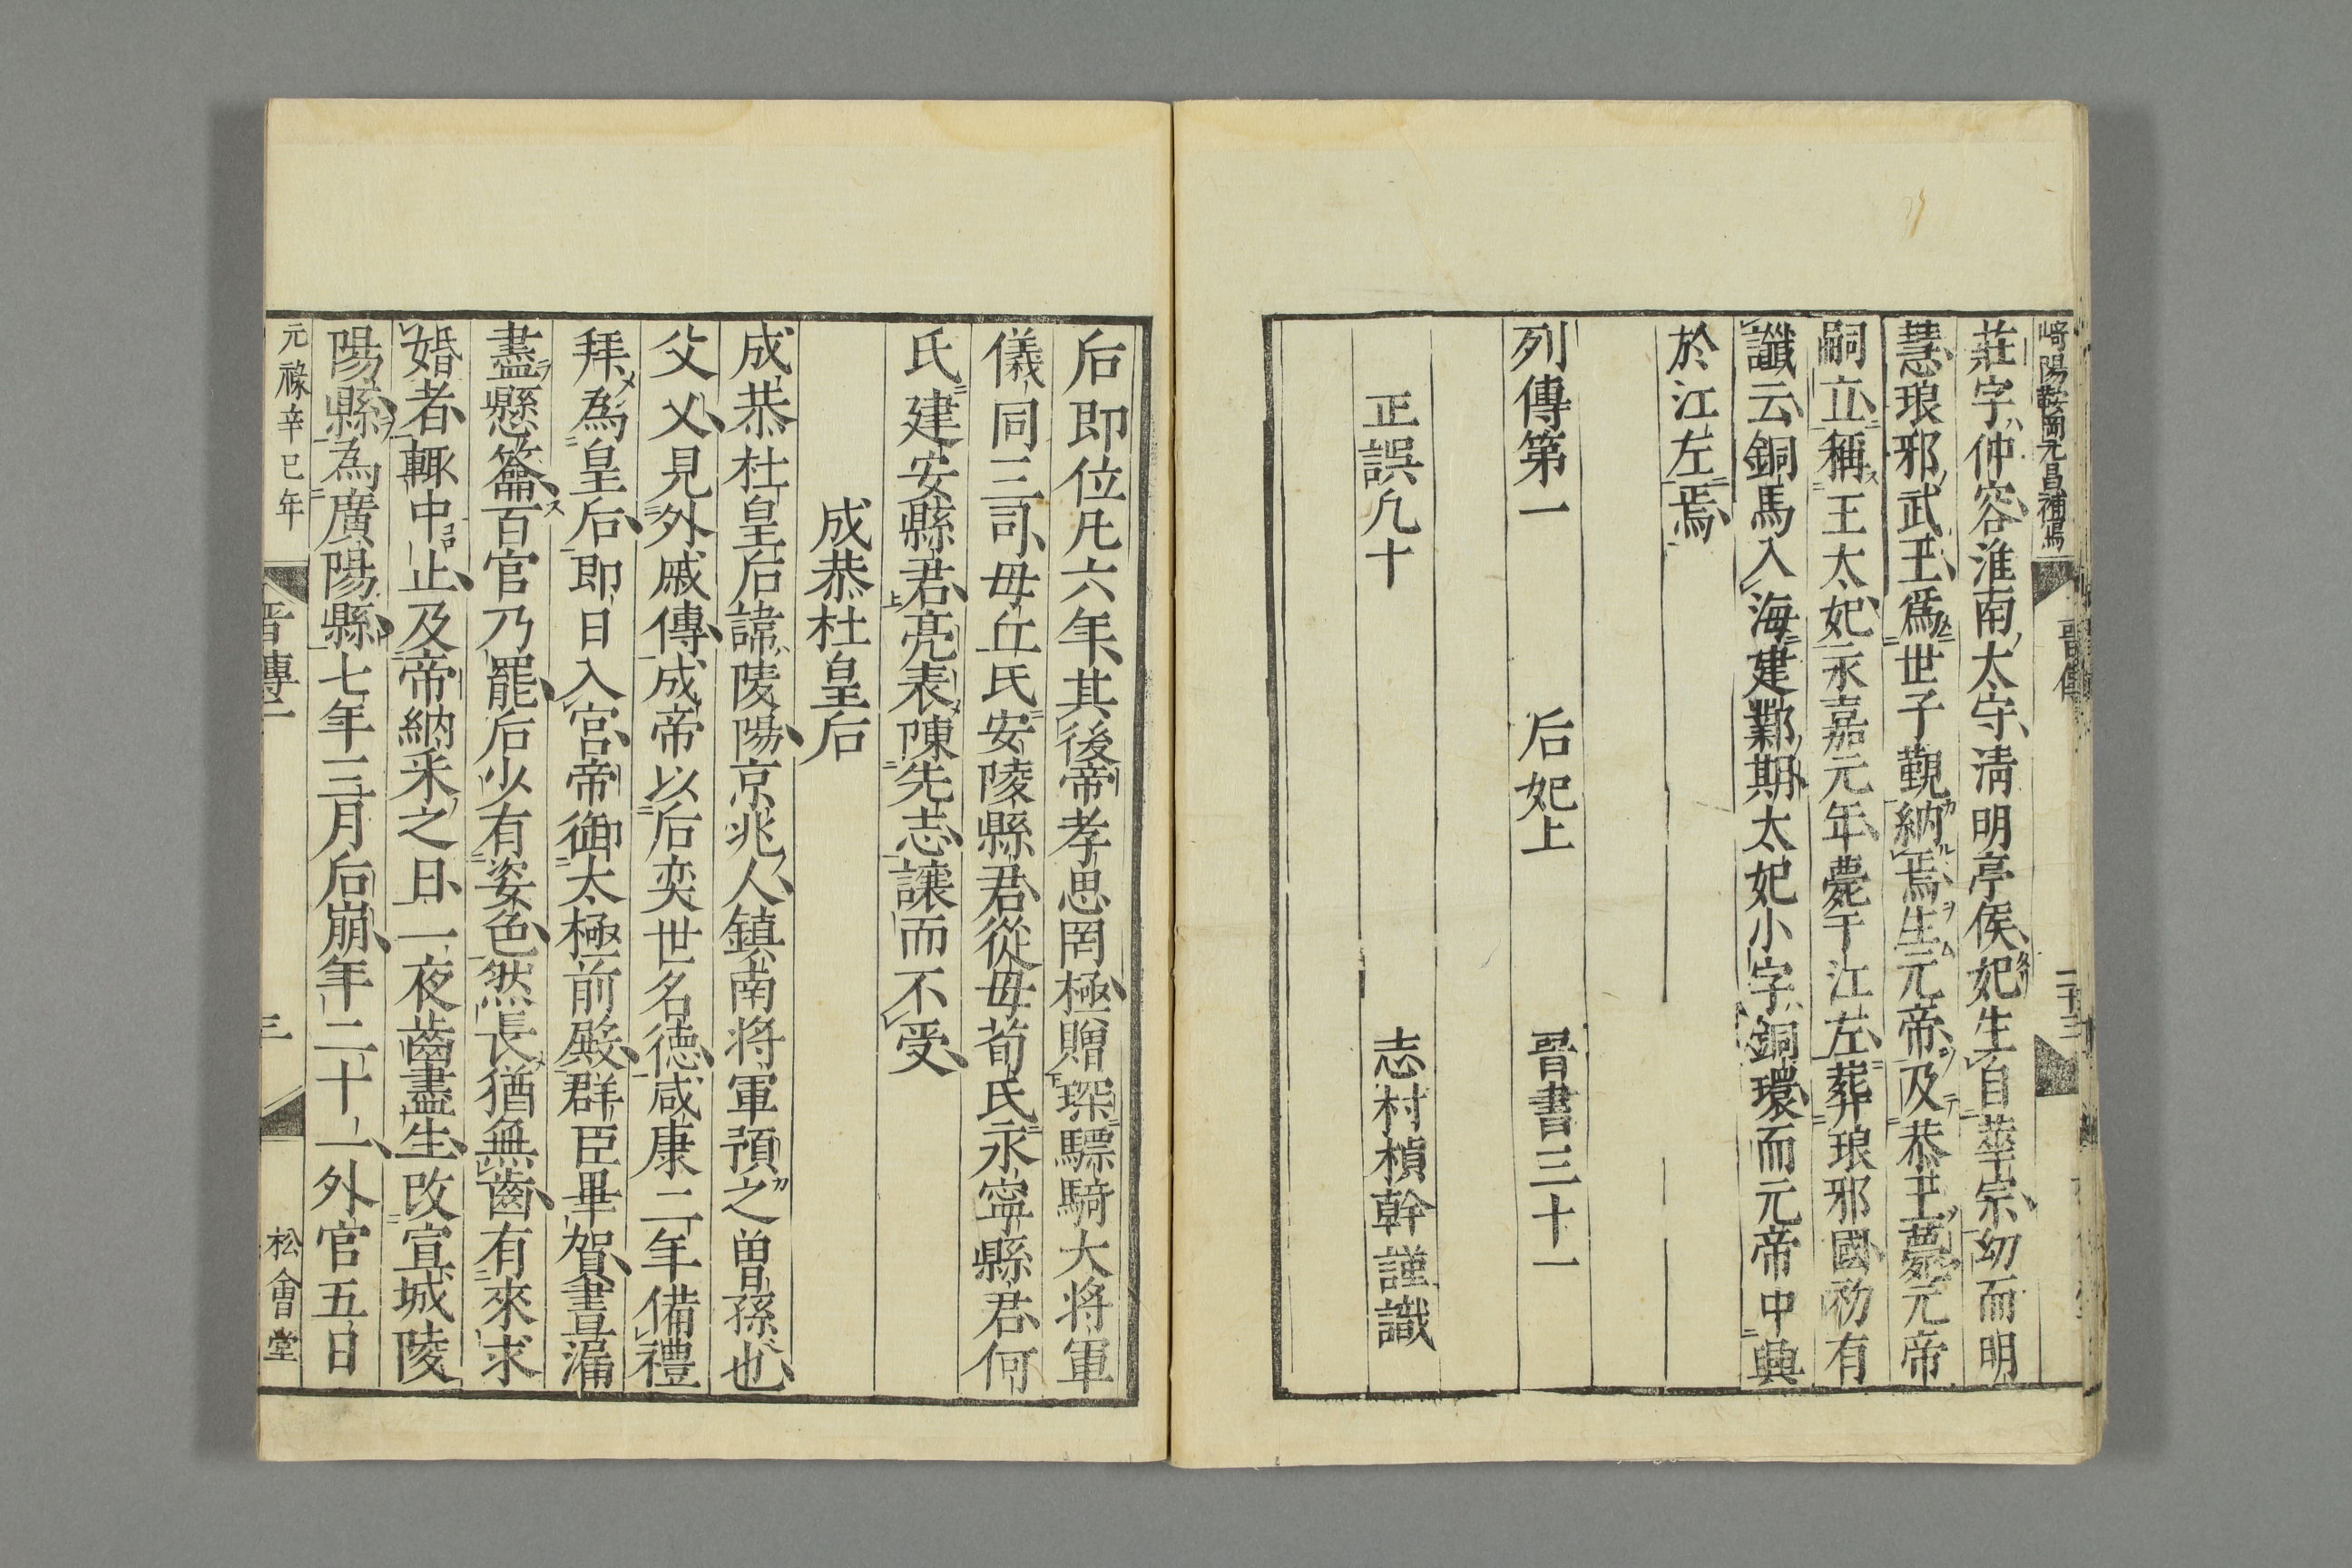 崎陽鞍岡元昌補寫
晉傳
二十三
莊字仲容淮南太守清明亭侯妃生自華宗幼而明
慧琅邪武王爲世子覲納焉生元帝及恭王薨元帝
嗣立稱王太妃永嘉元年薨于江左葬琅邪國初有
讖云銅馬入海建鄴期太妃小字銅環而元帝中興
於江左焉
列傳第一 后妃上 晉書三十一
正誤凡十 志村楨幹謹識
后即位凡六年其後帝孝思罔極贈琛驃騎大將軍
儀同三司母丘氏安陵縣君從母荀氏永寧縣君何
氏建安縣君亮表陳先志讓而不受
成恭杜皇后
成恭杜皇后諱陵陽京兆人鎮南将軍預之曽孫也
父乂見外戚傳成帝以后奕世名德咸康二年備禮
拜為皇后即日入宮帝御太極前殿群臣畢賀晝漏
盡懸籥百官乃罷后少有姿色然長猶無齒有來求
婚者輒中止及帝納采之日一夜齒盡生改宣城陵
陽縣為廣陽縣七年三月后崩年二十一外官五日
元祿辛巳年
晉傳二
三
松會堂